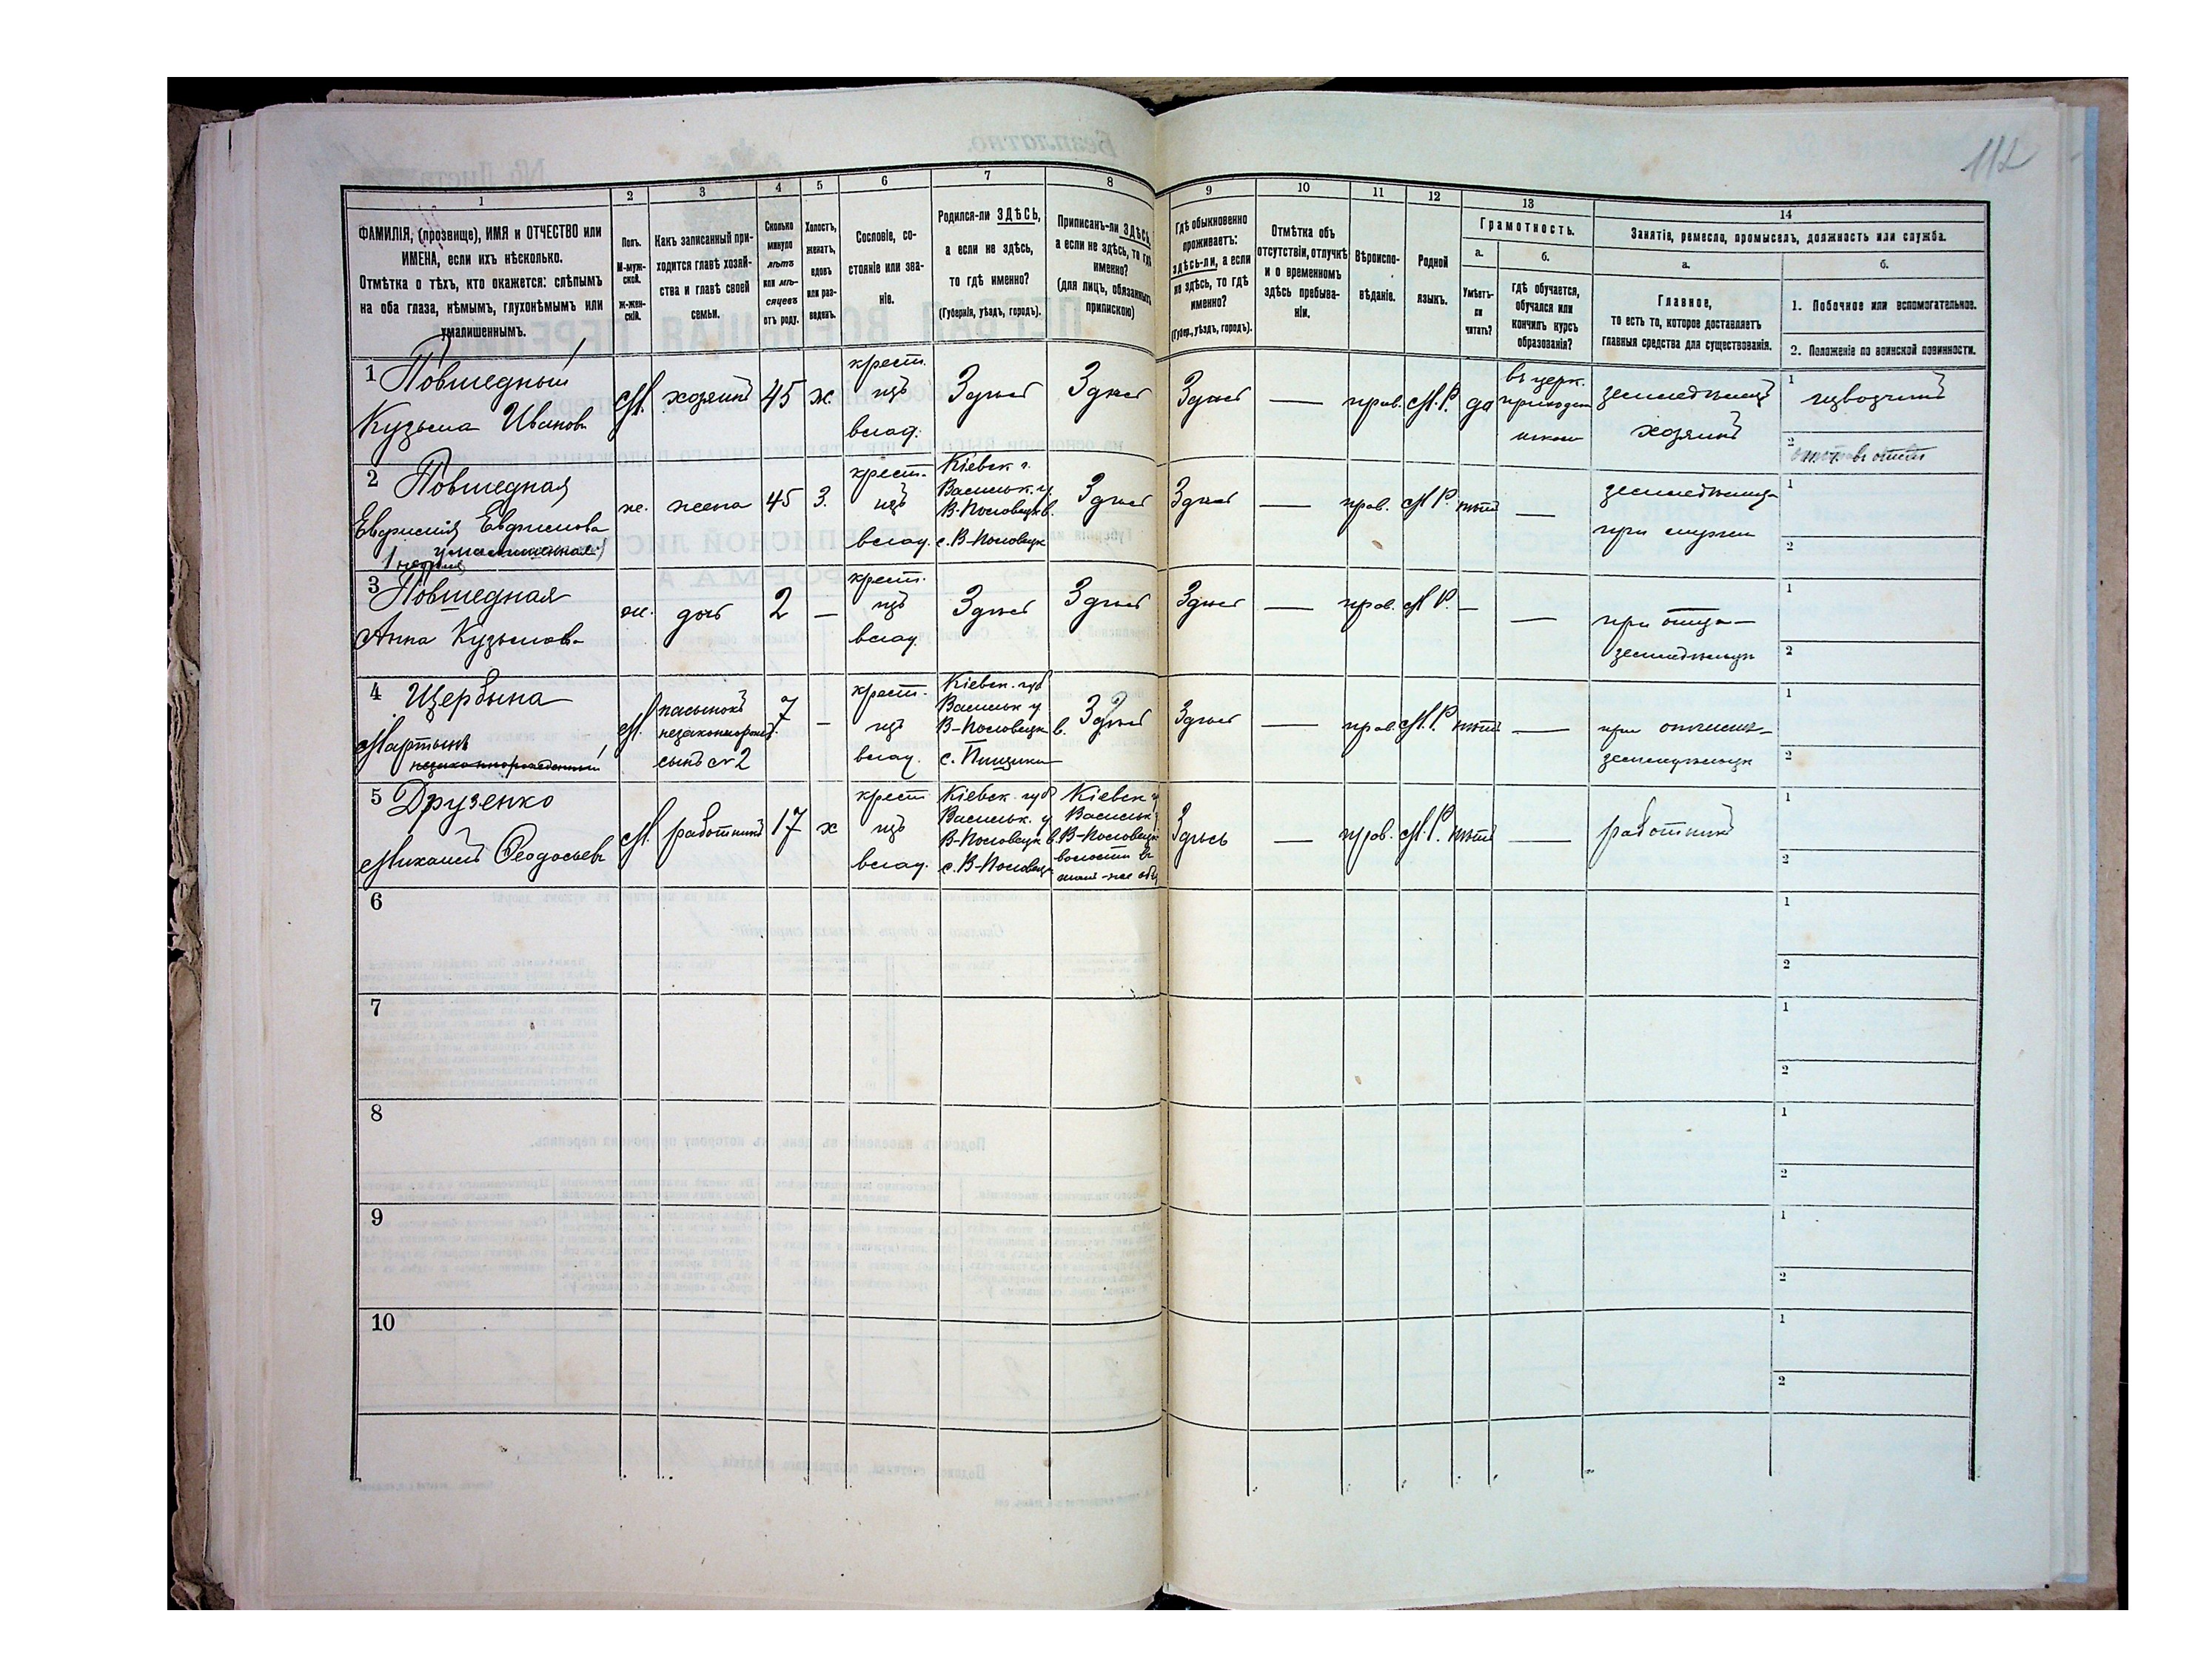 112
1
2
3
4
5
6
7
8
9
10
11
12
13
14
ФАМИЛІЯ, (прозвище), ИМЯ и ОТЧЕСТВО или
ИМЕНА, если ихъ нѣсколько.
Отмѣтка о тѣхъ, кто окажется: слѣпымъ
на оба глаза, нѣмымъ, глухонѣмымъ или
умалишеннымъ.
Полъ.
М-муж-
ской.
ж-жен-
скій.
Какъ записанный при-
ходится главѣ хозяй-
ства и главѣ своей
семьи.
Сколько
минуло
лѣтъ
или мѣ-
сяцевъ
отъ роду.
Холостъ,
женатъ,
вдовъ
или раз-
веденъ.
Сословіе, со-
стояніе или зва-
ніе.
Родился-ли ЗДѢСЬ,
а если не здѣсь,
то гдѣ именно?
(Губернія, уѣздъ, городъ).
Приписанъ-ли ЗДѢСЬ,
а если не здѣсь, то гдѣ
именно?
(для лицъ, обязанныхъ
припискою)
Гдѣ обыкновенно
проживаетъ:
здѣсь-ли, а если
не здѣсь, то гдѣ
именно?
(Губер., уѣздъ, городъ).
Отмѣтка объ
отсутствіи, отлучкѣ
и о временномъ
здѣсь пребыва-
ніи.
Вѣроиспо-
вѣданіе.
Родной
языкъ.
Грамотность.
а.
Умѣетъ-
ли
читать?
б.
гдѣ обучается,
обучался или
кончилъ курсъ
образованія?
Занятіе, ремесло, промыселъ, должность или служба.
а.
Главное,
то есть то, которое доставляетъ
главныя средства для существованія.
б.
1. Побочное или вспомогательное.
2. Положеніе по воинской повинности.
1 Повшедный
Кузьма Иванов
М.
хозяинъ
45
ж.
крест.
изъ
влад.
Здѣсь
Здѣсь
Здѣсь
—
прав.
М.Р.
да
въ церк.
приходск
школе
земледѣлецъ
хозяинъ
1
извозчикъ
2
2 Повшедная
Евфимія Евфимова
ж.
жена
45
З.
крест.
изъ
влад.
Кіевск г.
Васильк. у
В-Половецк в.
с. В-Половецк
Здѣсь
Здѣсь
—
прав.
М.Р.
нѣтъ
—
при мужѣ
1
2
3 Повшедная
Анна Кузьмов
ж.
дочь
2
—
крест.
изъ
влад.
Здѣсь
Здѣсь
Здѣсь
—
прав.
М.Р.
—
—
при отцѣ
земледѣльцѣ
1
2
4 Щербына
Мартынъ
незаконнорожденный
М.
пасынокъ
незаконнорожд.
сынъ №2
7
—
крест.
изъ
влад.
Кіевск. губ
Васильк у
В-Половецк в.
с. Пищики
Здѣсь
Здѣсь
—
прав.
М.Р.
нѣтъ
—
при отчимѣ
земледѣльцѣ
1
2
5 Друзенко
Михаилъ Феодосьев
М.
работникъ
17
х
крест
изъ
влад.
Кіевск. губ
Васильк. у
В-Половецк в.
с. В-Половецк
Кіевск г
Васильк
В-Половецк
волости въ
Здѣсь
—
прав.
М.Р.
нѣтъ
—
работникъ
1
2
6
1
2
7
1
2
8
1
2
9
1
2
10
1
2